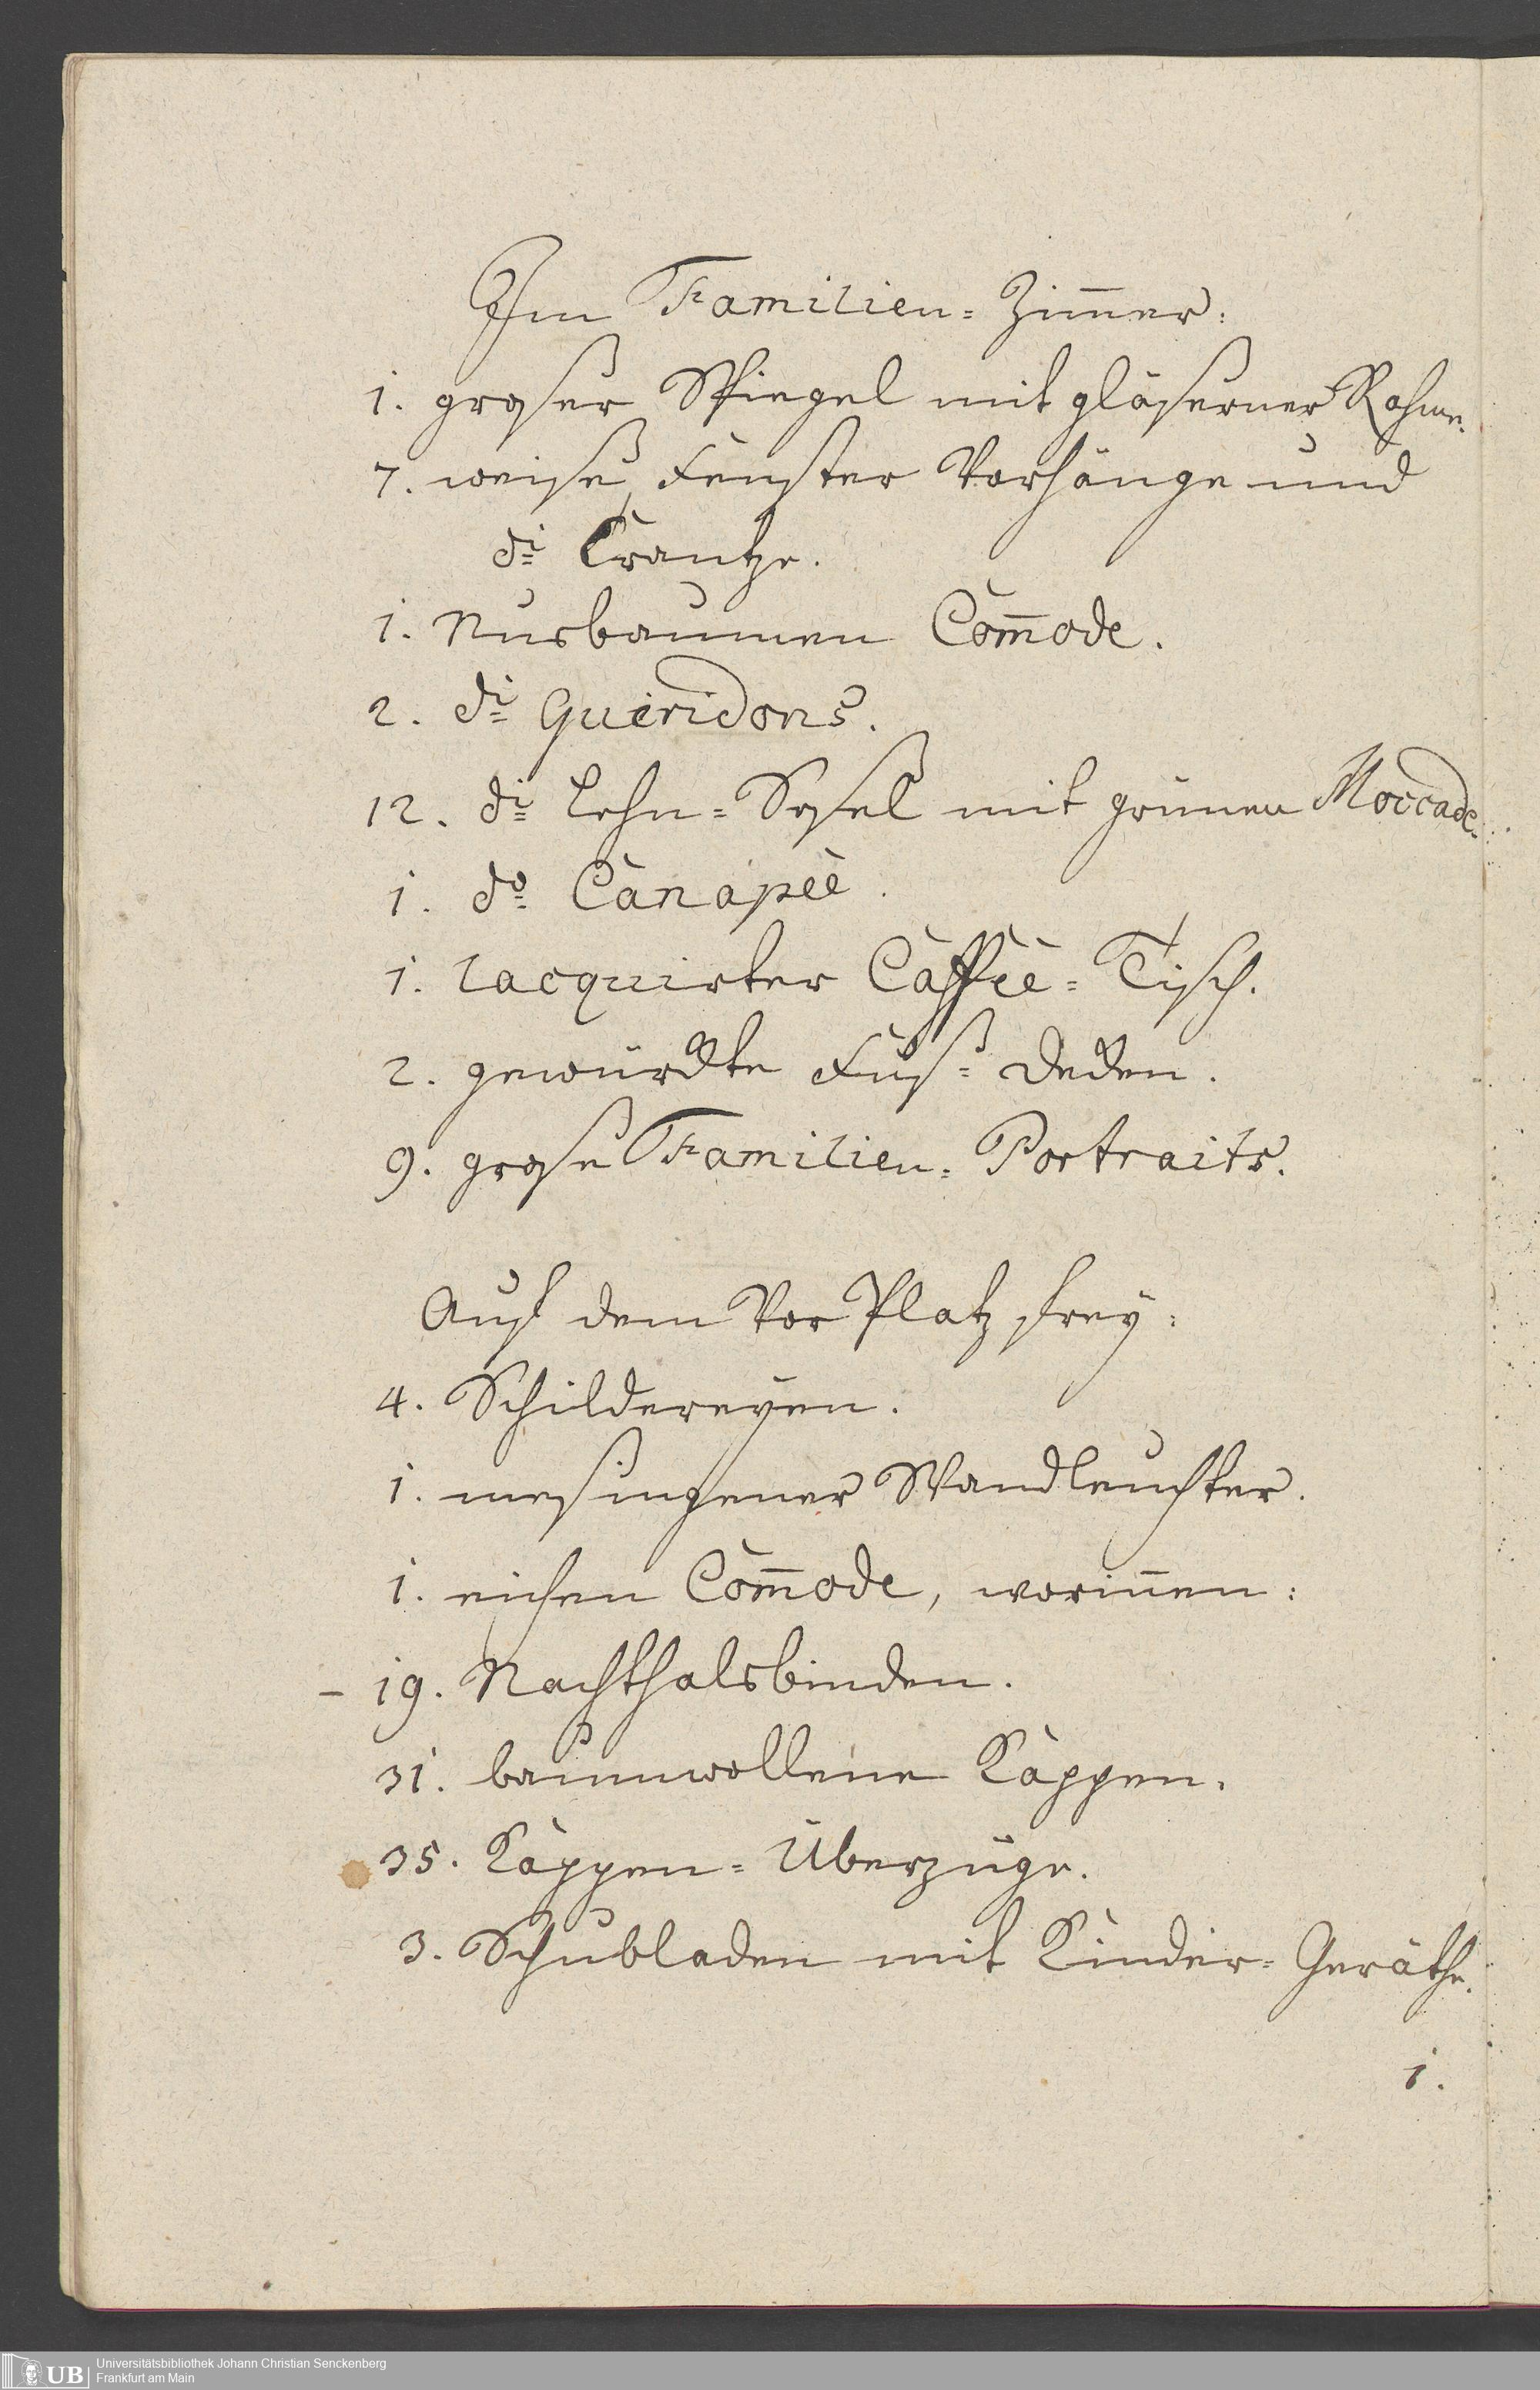 Im Familien= Zim̄er:
1. groser Spiegel mit gläserner Rahme.
7. weise Fenster Vorhänge und
di Crantze.
1. Nusbaumen Com̄ode.
2. di Gueridons.
12. di Lehn= Sesel mit grünen Moccade.
1. do Canapèè.
1. lacquirter Caffèè= Tisch.
2. gewürckte Fus= Decken.
9. grose Familien= Portraits.
Auf dem Vor Platz frey:
4. Schildereyen.
1. mesingener Wandleuchter.
1. eichen Com̄ode, worin̄en:
– 19. Nachthalsbinden.
31. baumwollene Kappen.
35. Kappen= Überzüge.
3. Schubladen mit Kinder= Geräthe.
1.
UB Universitätsbibliothek Johann Christian Senckenberg
Frankfurt am Main